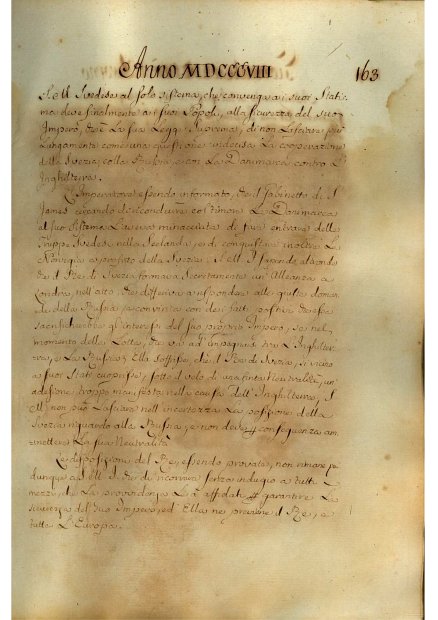 Anno MDCCCVIII 163
S. M. Svedese al solo sistema, che convenga a i suoi Stati.
ma deve finalmente a i suoi Popoli, alla sicurezza del suo
Impero, ch'è la sua Legge Suprema, di non lasciare più
lungamente come una questione indecisa La cooperazione
della Svezia colla Russia, e con La Danimarca contro l'
Inghilterra.
L'Imperatore essendo informato, che il Gabinetto di S.
James cercando di ricondurre col timore La Danimarca
al suo sistema L'aveva minacciata di fare entrare delle
Truppe Svedesi nella Seelanda, e di conquistare inoltre La
Norvegia a profitto della Svezia. S. M. I. sapendo altronde
che il Re di Svezia formava Secretamente un' Alleanza a
Londra, nell'atto, che differiva a rispondere alle giuste doman-
de della Russia,
sacrificherebbe gl'interessi del suo proprio Impero, se nel
momento della Lotta, che va ad impegnarsi tra L'Inghilter-
ra, e La Russia, Ella soffrisse, che il Re di Svezia, sì vicino
a suoi Stati cuoprisse, sotto il velo di una finta Neutralità, un'
adesione, troppo manifesta nella causa dell'Inghilterra. S.
M. non può Lasciare nell'incertezza La posizione della
Svezia riguardo alla Russia, e non deve conseguenza am-
mettere La sua Neutralità.
Le disposizioni del Re, essendo provate, non rimane
dunque a S. M. I. che di ricorrere senza indugio a tutti i
mezzi, che La provvidenza Le à affidati garantire La
sicurezza del suo Impero, ed Ella ne previene il Re, e
tutta L'Europa.